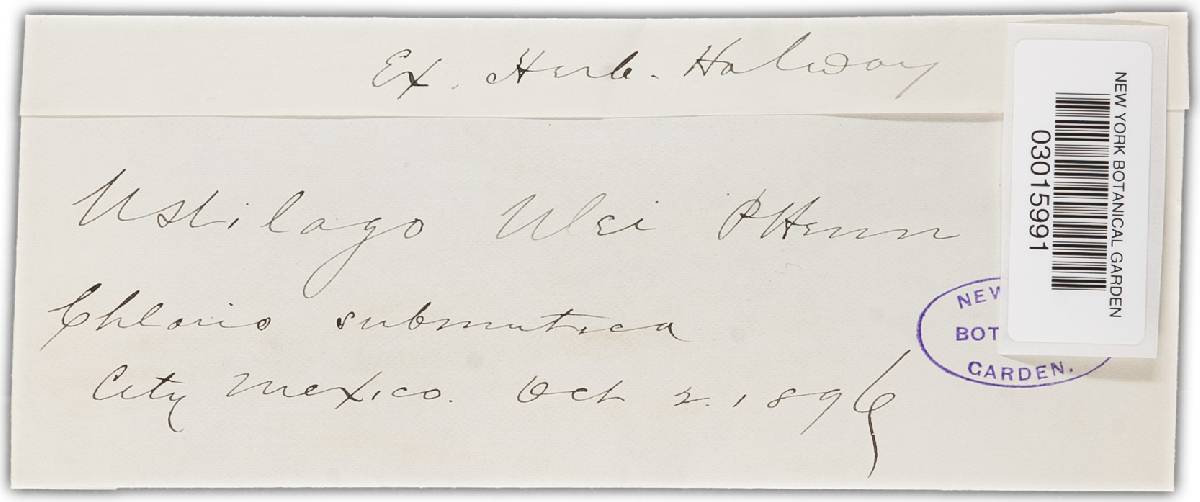 Ex. Herb. Holway
Ustilago Ulei PHenn
Chloris submutica
City Mexico. Oct 2. 1896
NEW YORK BOTANICAL GARDEN
03015991
NEW
BOT
GARDEN.